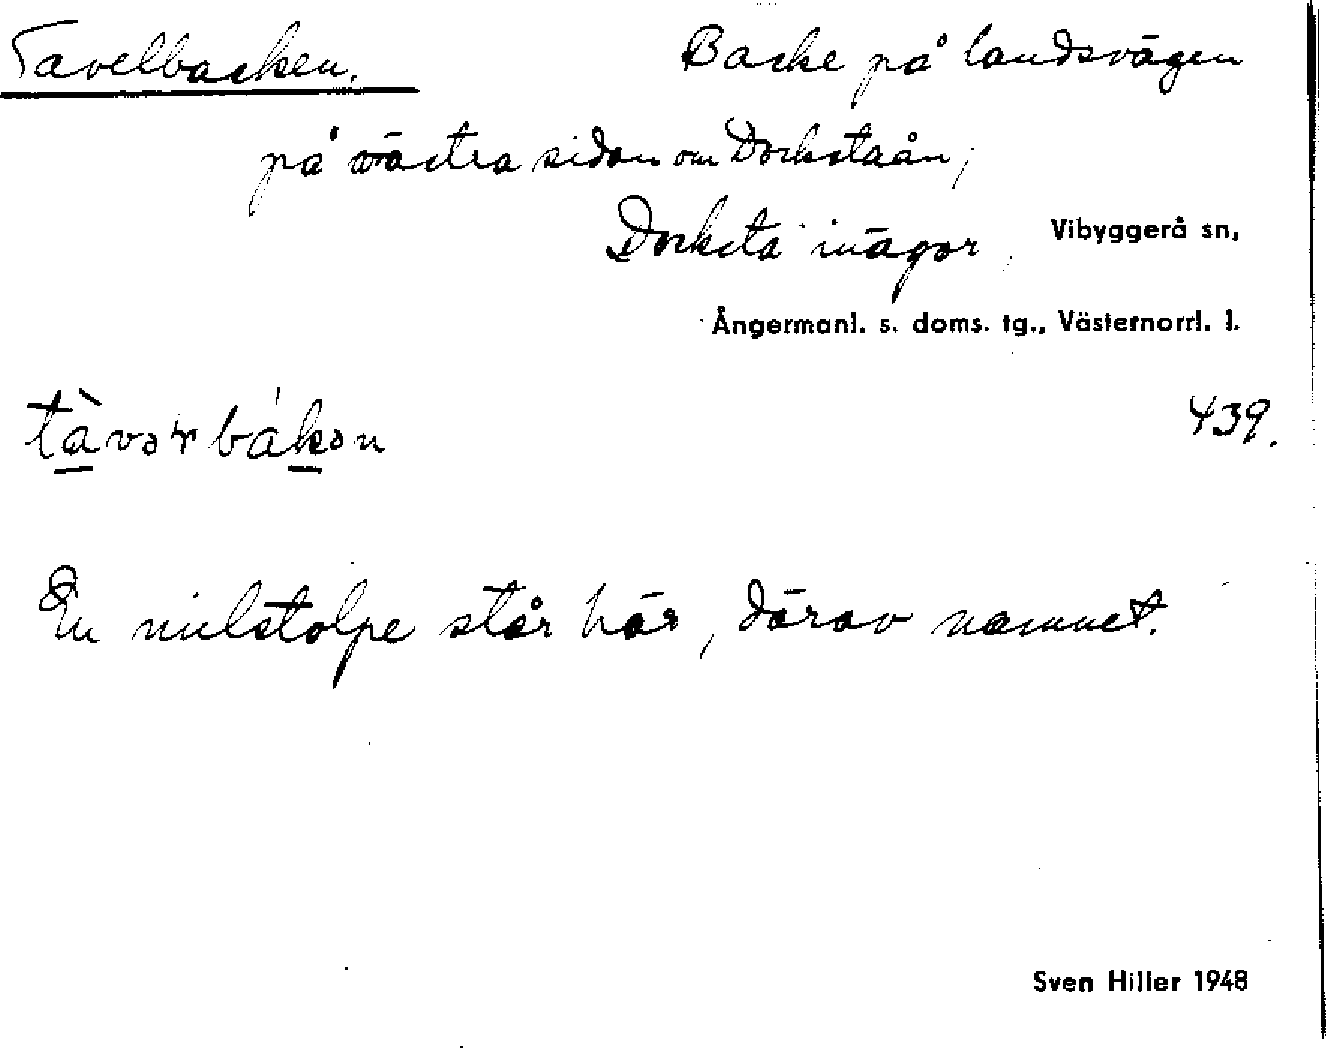 Tavelbacken. Backe på landsvägen
på västra sidan om Dockstaån,
Docksta inägor, Vibyggerå sn,
Ångermanl. s. doms. tg., Västernorrl. l.
439.
En milstolpe står här, därav namnet.
Sven Hiller 1948